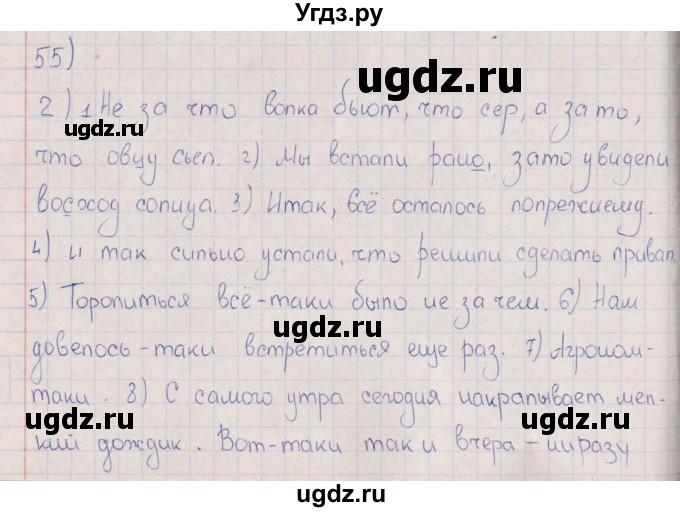 Угдз.ру
55)
2) 1. Не за что волка бьют, что сер, а за то,
что овцу съел. 2) Мы встали рано, зато увидели
восход солнца. 3) Итак, всё осталось попрежнему.
4) и так сильно устали, что решили сделать привал.
5) Торопиться всё-таки было не зачем. 6) Нам
довелось-таки встретиться еще раз. 7) Агроном-
таки. 8) С самого утра сегодня накрапывает мел-
кий дождик. Вот-таки так и вчера - ни разу
ugdz.ru
ugdz.ru
ugdz.ru
ugdz.ru
ugdz.ru
ugdz.ru
ugdz.ru
ugdz.ru
ugdz.ru